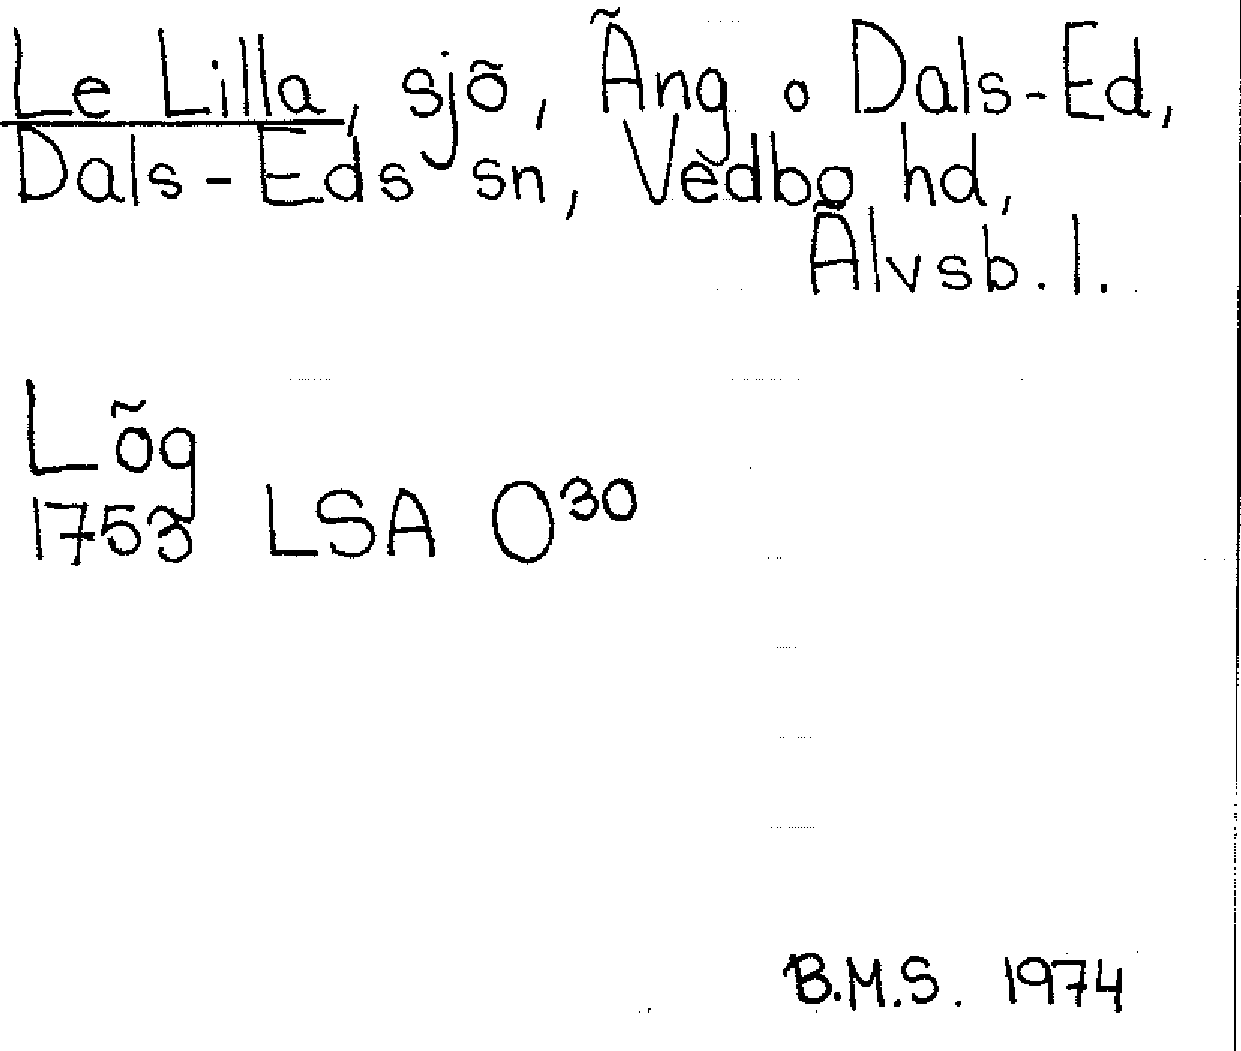 Le Lilla, sjö, Äng o Dals-Ed,
Dals-Eds sn, Vedbo hd,
Älvsb. l.
Lög
1753 LSA O30
B.M.S. 1974